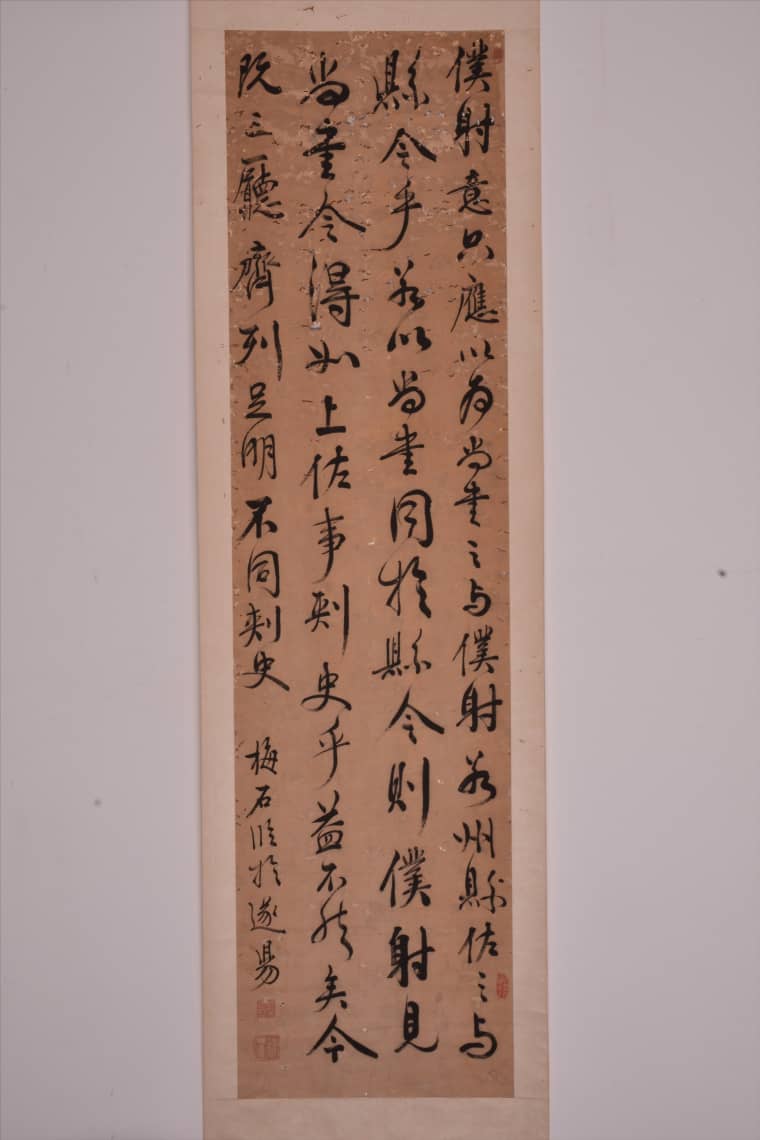 僕射意只應以為尚書之与僕射若州縣佐之与
縣令乎若以尚書同於縣令則僕射見
尚書令得如上佐事刺史乎益不然矣今
既三廳齊列足明不同刺史
梅石臨於遂昜